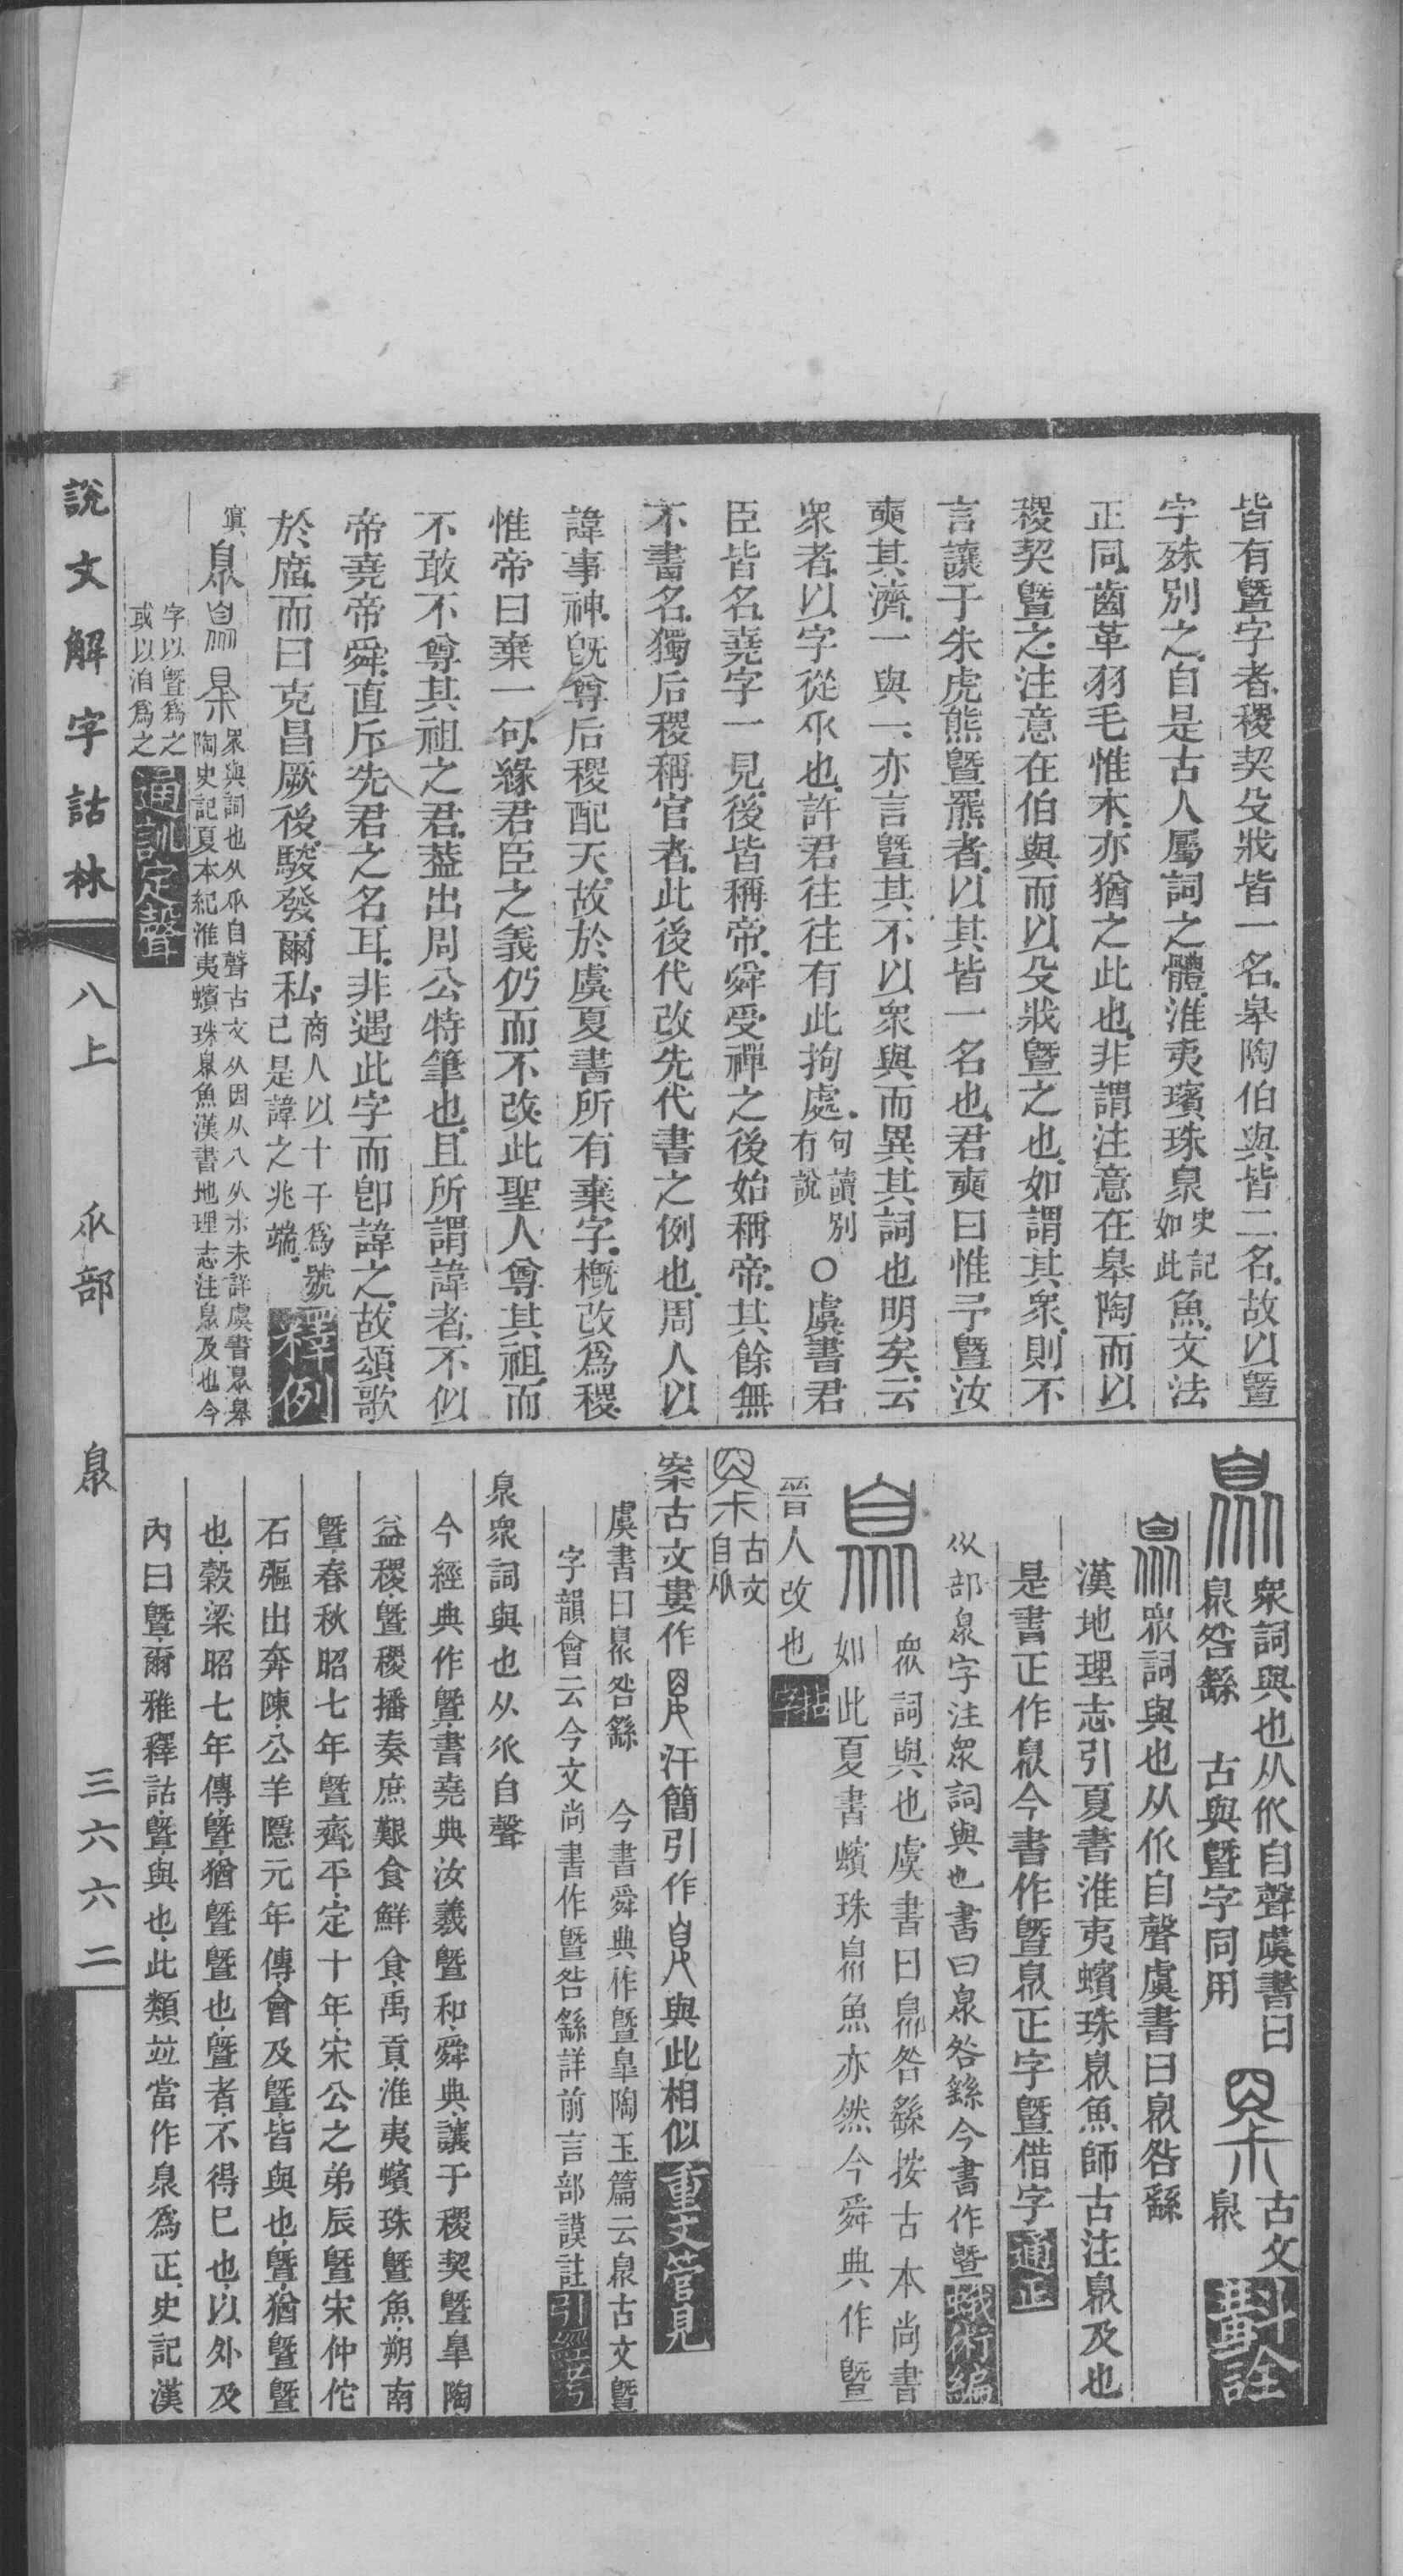 皆有暨字者稷契殳戕皆一名皋陶伯與皆二名故以暨
字殊別之自是古人屬詞之體淮夷蠙珠臮史記如此魚文法
正同齒革羽毛惟木亦猶之此也非謂注意在皋陶而以
稷契暨之注意在伯與而以殳戕暨之也如謂其衆則不
言讓于朱虎熊暨羆者以其皆一名也君奭曰惟予暨汝
奭其濟一與一亦言暨其不以衆與而異其詞也明矣云
衆者以字從㐺也許君往往有此拘處句讀別有說○虞書君
臣皆名堯字一見後皆稱帝舜受禪之後始稱帝其餘無
不書名獨后稷稱官者此後代改先代書之例也周人以
諱事神旣尊后稷配天故於虞夏書所有棄字概改爲稷
惟帝曰棄一句緣君臣之義仍而不改此聖人尊其祖而
不敢不尊其祖之君葢出周公特筆也且所謂諱者不似
帝堯帝舜直斥先君之名耳非遇此字而卽諱之故頌歌
於廟而曰克昌厥後駿發爾私商人以十干爲號己是諱之兆端釋例
臮衆與詞也从㐺自聲古文从因从八从木未詳虞書臮皋
陶史記夏本紀淮夷蠙珠臮魚漢書地理志注臮及也今
字以暨爲之
或以洎爲之通訓定聲
說文解字詁林 八上 㐺部 臮 三六六二
衆詞與也从㐺自聲虞書曰
臮咎繇 古與暨字同用 古文臮斠詮
臮衆詞與也从㐺自聲虞書曰臮咎繇
漢地理志引夏書淮夷蠙珠臮魚師古注臮及也
是書正作臮今書作暨臮正字暨借字通正
㐺部臮字注衆詞與也書曰臮咎繇今書作暨蛾術編
衆詞與也虞書曰臮咎繇按古本尚書
如此夏書蠙珠臮魚亦然今舜典作暨
晉人改也古字
古文
自㐺
案古文婁作汗簡引作與此相似重文管見
虞書曰臮咎繇 今書舜典作暨皐陶玉篇云臮古文暨
字韻會云今文尚書作暨咎繇詳前言部謨註引經考
臮衆詞與也从㐺自聲
今經典作暨書堯典汝羲暨和舜典讓于稷契暨皐陶
益稷暨稷播奏庶艱食鮮食禹貢淮夷蠙珠暨魚朔南
暨春秋昭七年暨齊平定十年宋公之弟辰暨宋仲佗
石彄出奔陳公羊隱元年傳會及暨皆與也暨猶暨暨
也穀梁昭七年傳暨猶暨暨也暨者不得已也以外及
內曰暨爾雅釋詁暨與也此類竝當作臮爲正史記漢